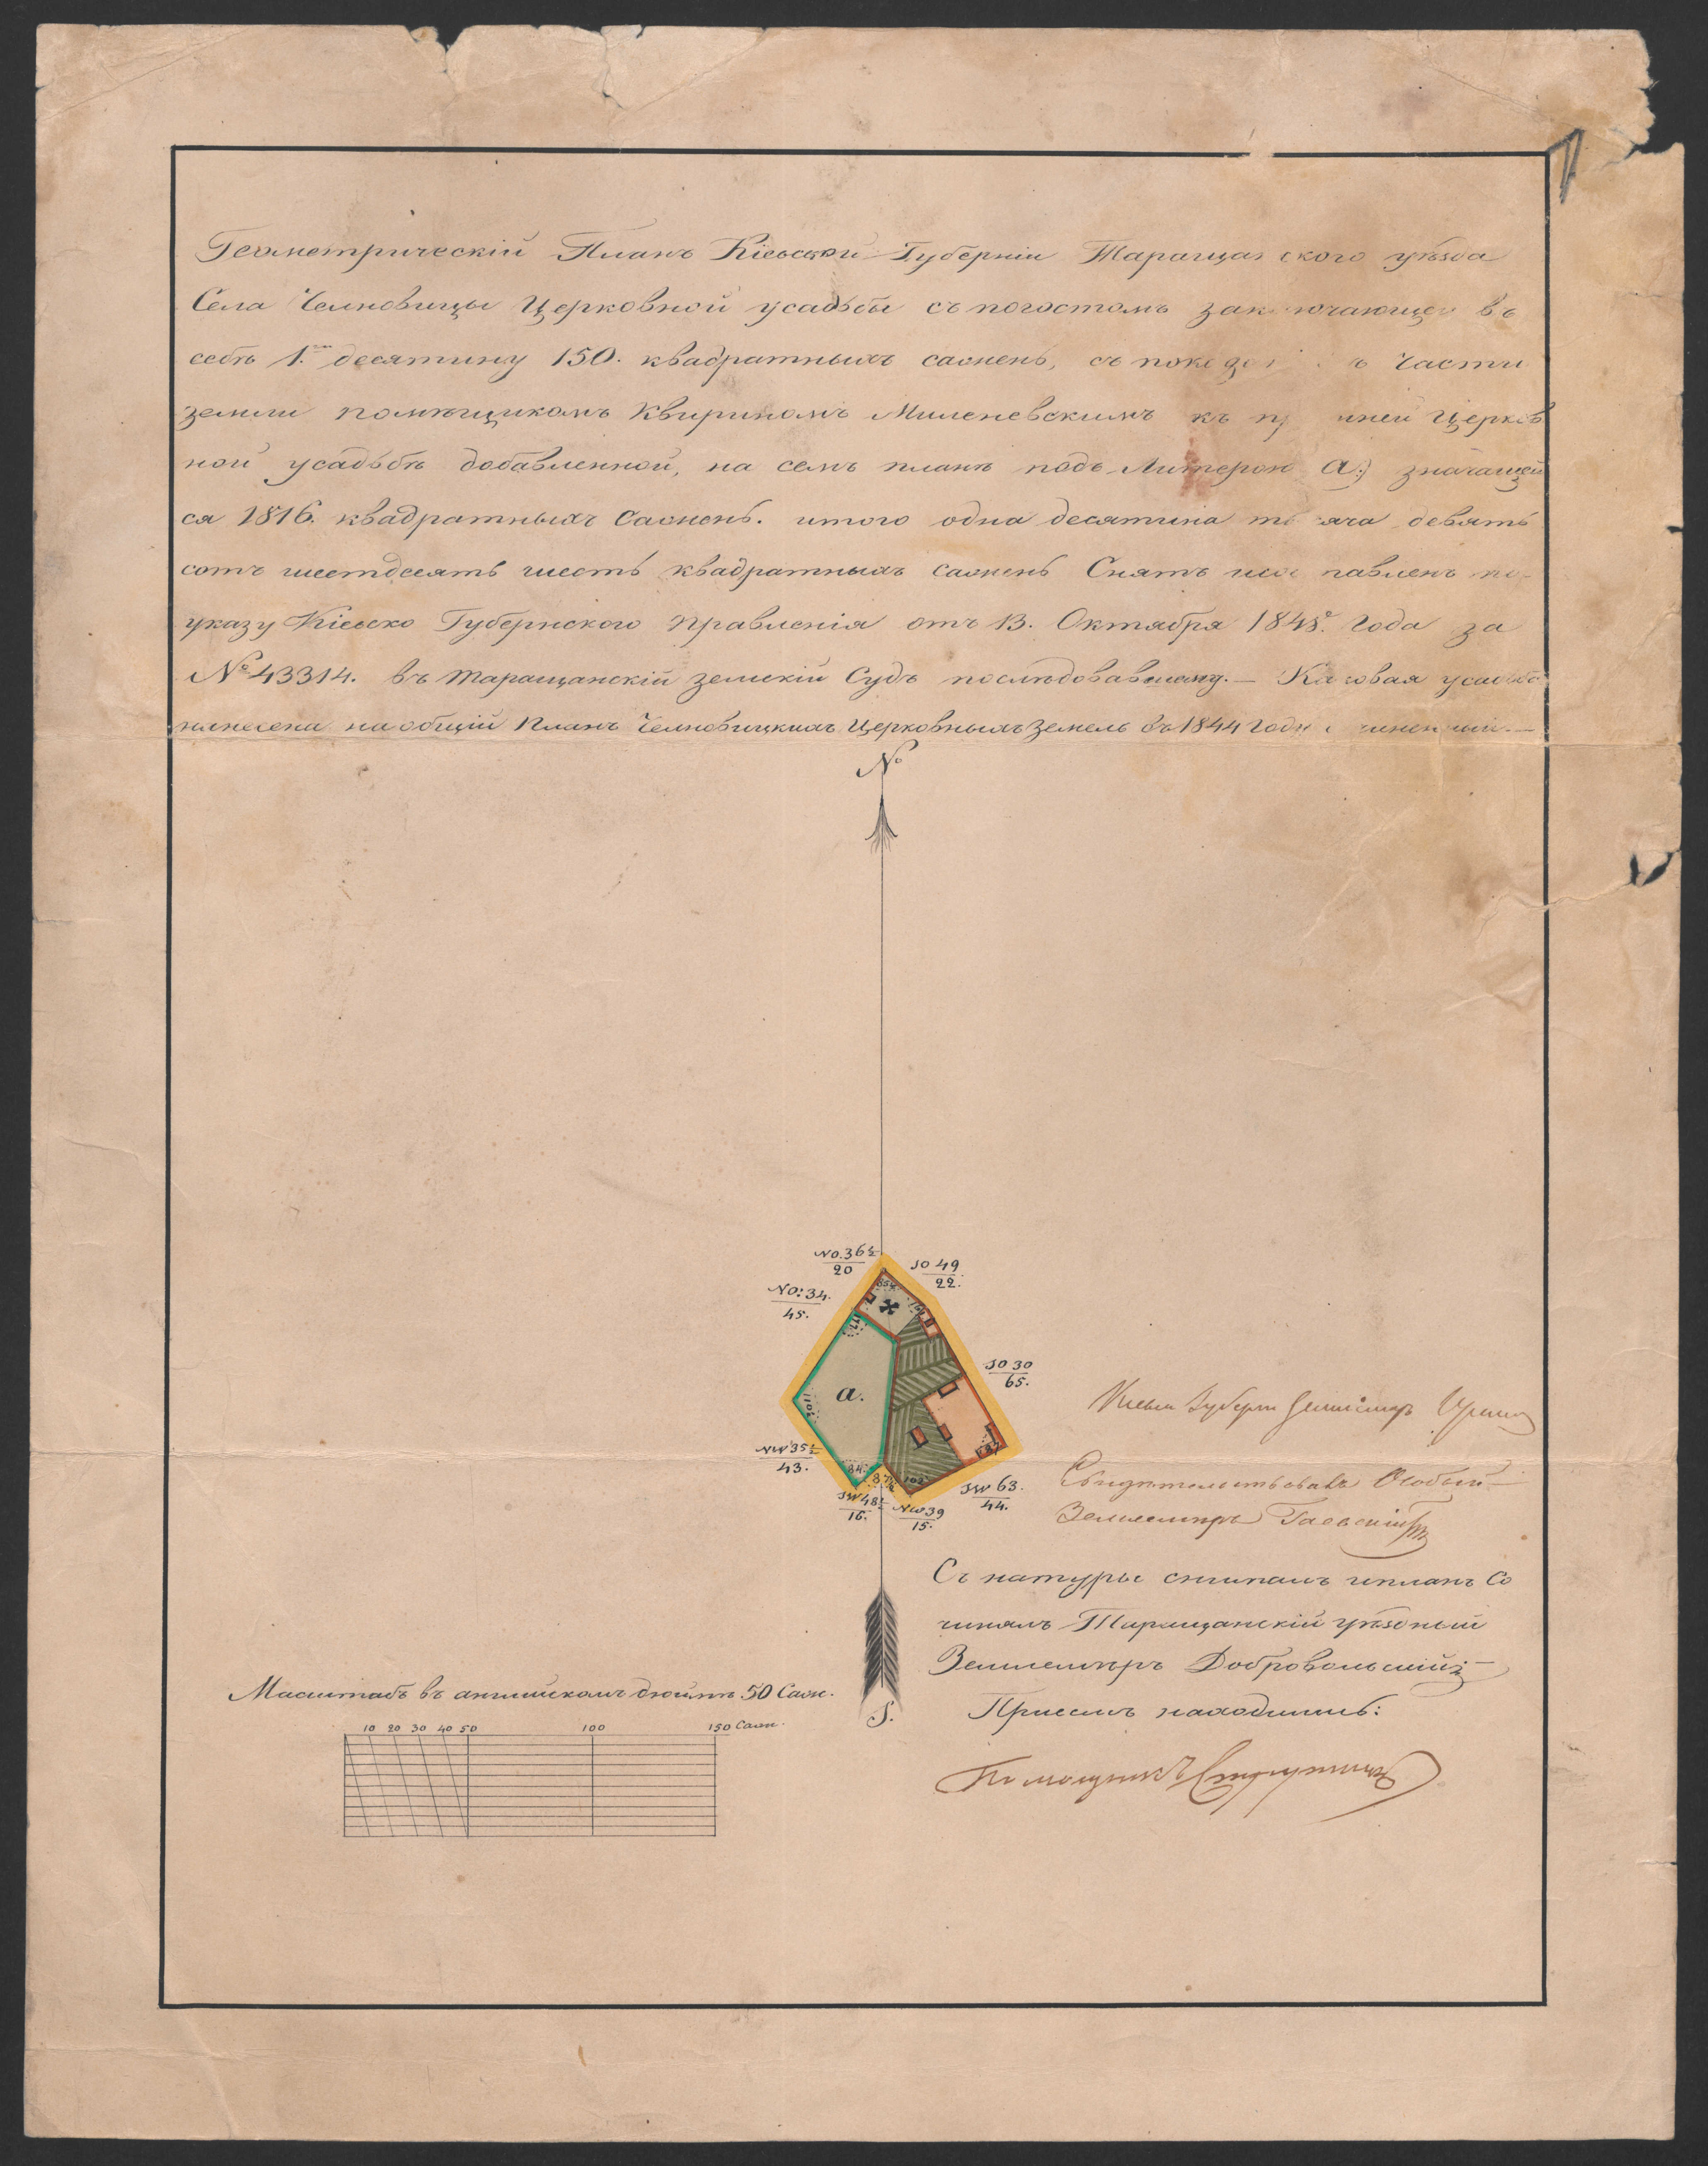 Геометрическій Планъ Кіевской Губерніи Таращанского уѣзда
Села Челновицы Церковной усадьбы съ погостомъ заключающей въ
себѣ 1. десятину 150. квадратныхъ сажень, съ части
земли помѣщикомъ Квириномъ Миленевскимъ къ Церков
ной усадьбѣ добавленной, на семъ планѣ подъ Литерою а.) значащей
ся 1816. квадратныхъ Сажень. итого одна десятина тысяча девять
сотъ шестдесять шесть квадратныхъ сажень Снятъ по
указу Кіевско Губернского Правленія отъ 13. Октября 1845. Года за
№ 43314. въ Таращанскій земскій Судъ послѣдовавшему. — Каковая усадьба
нанесена на общій Планъ Челновицкихъ Церковныхъ Земель въ 1844 Году
N
NO. 36½
20
SO 49
22.
NO: 34.
45.
SO 30
65.
а.
NW 35½
43.
SW 63.
44.
SW 48½
16.
NW 39
15.
S.
Свидѣтельствовалъ Особый
Землемѣръ Гаевскій
Съ натуры снималъ и планъ Со
чинялъ Таращанскій уѣздный
Землемѣръ Добровольскій
При семъ находились:
Помощникъ
Масштабъ въ англійскомъ дюймѣ 50 Саж.
10 20 30 40 50 100 150 Саж.